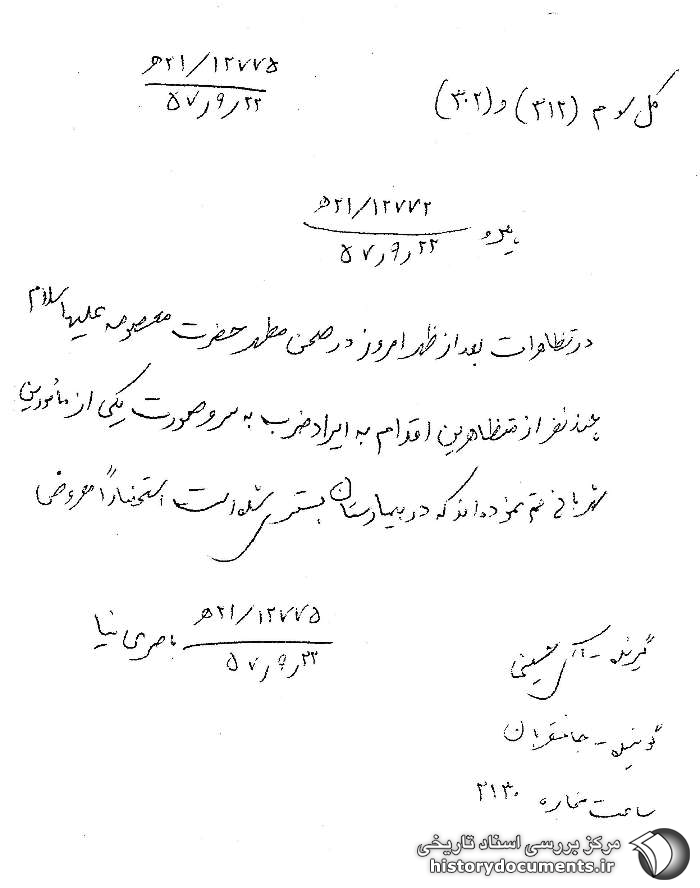 ۲۱/۱۲۷۷۵ﻫ
۵۷٫۹٫۲۲
کل سوم (۳۱۲) و (۳۰۲)
پیرو ۲۱/۱۲۷۷۲ﻫ
۵۷٫۹٫۲۲
در تظاهرات بعد از ظهر امروز در صحن مطهر حضرت معصومه علیها سلام
چند نفر از متظاهرین اقدام به ایراد ضرب به سر و صورت یکی از مأمورین
شهربانی قم نموده‌اند که در بیمارستان بستری شده است استحضاراً معروض
۲۱/۱۲۷۷۵ﻫ ناصری نیا
۵۷٫۹٫۲۲
گیرنده -
گوینده - جانقربان
ساعت مخابره ۲۱۳۰
مرکز بررسی اسناد تاریخی
historydocuments.ir